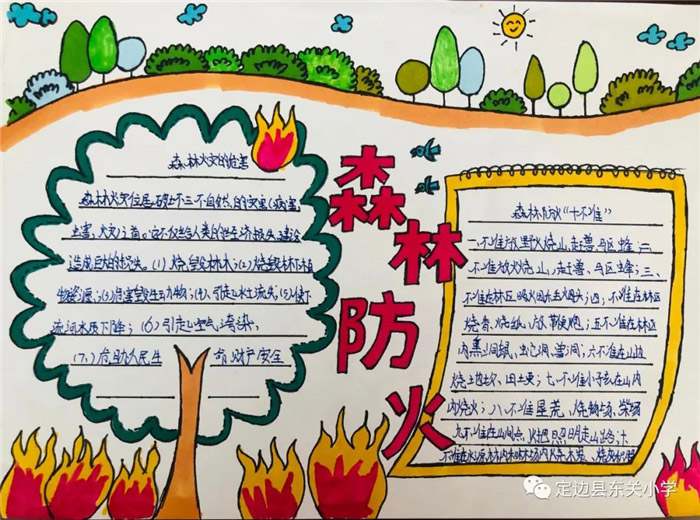 森林防火
森林火灾的危害
森林火灾位居破坏三大自然的灾害(病害,
虫害,火灾)之首。它不仅给人类的经济建设
造成巨大的损失。(1)烧毁林木;(2)烧毁林下植
物资源;(3)危害野生动物;(4)、引起水土流失;(5)使下
流河水质下降;(6)引起空气污染,
(7、)危胁人民生 命财产安全
森林防火“十不准”
一、不准放野火烧山,赶兽、驱蜂;二、
不准放火烧山,赶兽、驱蜂;三、
不准在林区吸火
四、不准在林区
烧香、烧纸、放鞭炮;五不准在林区
内熏洞、出洞、兽洞;六不准在山边
烧土、田土要;七、不准小孩在山内
内烧火;八、不准
九不准在山间点火把照明走山路;十、
不准在
定边县东关小学